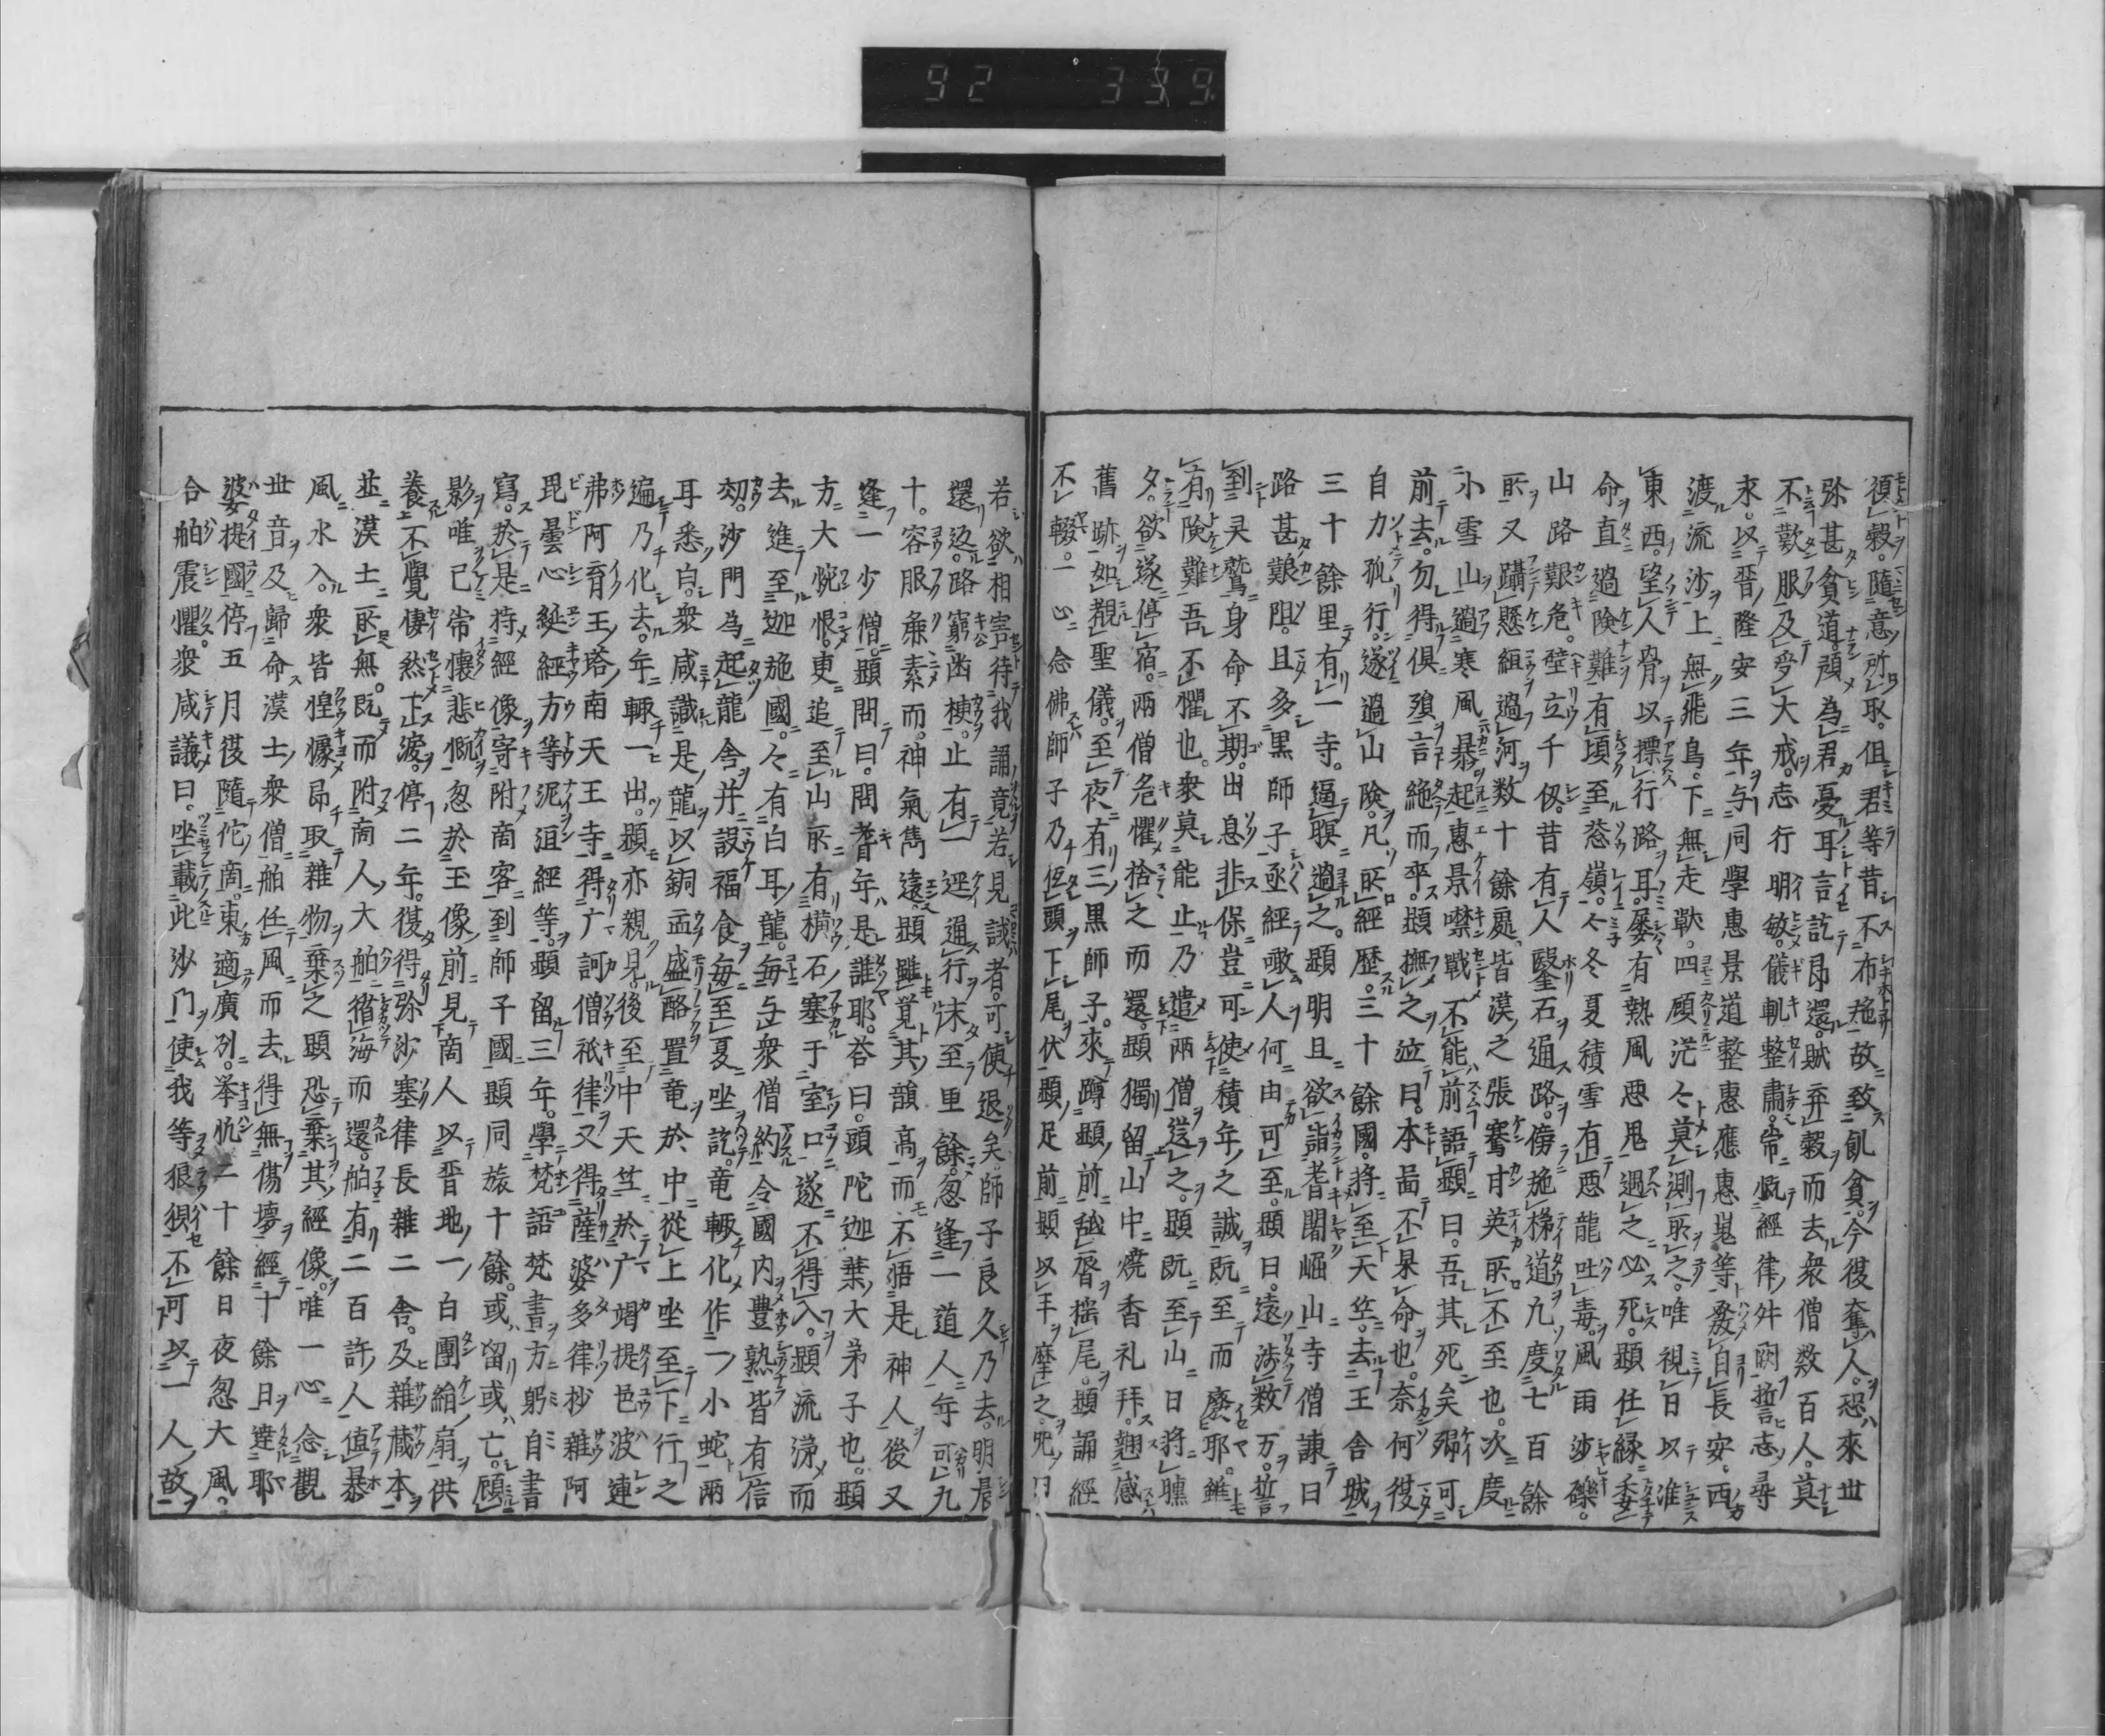 92 339.
須穀。隨意所取。但君等昔不布施故致飢貧。今復奪人。恐來世
弥甚貧道。預為君憂耳言訖即還。賊弃穀而去衆僧数百人。莫
不歎服及受大戒。志行明敏。儀軌整肅。常慨經律舛闕。誓志尋
求。以晉隆安三年。与同學惠景道整惠應惠嵬等發自長安。西
渡流沙上無飛鳥。下無走獣。四顧茫々莫測所之。唯視日以准
東西。望人骨以標行路耳。屡有熱風悪鬼遇之必死。顕任縁委
命直過険難有頃至葱嶺。々冬夏積雪有悪龍吐毒。風雨沙礫。
山路艱危。壁立千仭。昔有人鑿石通路。傍施梯道凡度七百餘
所又躡懸絙過河数十餘處皆漢之張騫甘英所不至也。次度
小雪山遇寒風暴起惠景噤戰不能前語顕曰。吾其死矣卿可
前去。勿得俱殞言絶而卒。顕撫之泣曰。本啚不果命也。奈何復
自力孤行。遂過山険。凡所經歴。三十餘國。將至天竺。去王舎城
三十餘里有一寺。逼暝過之。顕明且欲詣耆闍崛山寺僧諌曰
路甚艱阻。且多黒師子亟經噉人何由可至。顕曰。遠渉数万。誓
到灵鷲身命不期。出息非保豈可使積年之誠既至而廢耶。雖
有険難吾不懼也。衆莫能止乃遣両僧送之。顕既至山日將曛
夕。欲遂停宿。両僧危懼捨之而還。顕獨留山中燒香礼拜。翹感
舊跡如覩聖儀。至夜有三黒師子。來蹲顕前舐唇揺尾。顕誦經
不輟。一心念佛師子乃低頭下尾伏顕足前顕以手摩之咒曰
若欲相害待我誦竟若見試者。可使退矣師子良久乃去。明晨
還返。路窮幽梗。止有一逕通行末至里餘。忽逢一道人年可九
十。容服麁素而。神氣雋遠顕雖覚其韻高而不悟是神人後又
逢一少僧。顕問曰。問耆年是誰耶。荅曰。頭陀迦葉大弟子也。顕
方大惋恨。更追至山所有横石塞于室口遂不得入。顕流涕而
去進至迦施國。々有白耳龍。毎与衆僧約令國内豊熟皆有信
効。沙門為起龍舎并設福食毎至夏坐訖。竜輙化作一小蛇両
耳悉白。衆咸識是龍以銅盂盛酪置竜於中從上坐至下行之
遍乃化去。年輙一出。顕亦親見後至中天竺於广竭提邑波連
弗阿育王塔南天王寺得广訶僧祇律又得薩婆多律抄雜阿
毘曇心綖經方等泥洹經等。顕留三年。學梵語梵書方躬自書
寫。於是持經像寄附商客到師子國顕同旅十餘。或留或亡。顧
影唯己常懐悲慨忽於玉像前見商人以晉地一白團絹扇供
養不覺悽然下涙。停二年。復得弥沙塞律長雜二舎。及雜蔵本
並漢土所無。既而附商人大舶循海而還。舶有二百許人値暴
風水入。衆皆惶懅即取雜物棄之顕恐棄其經像。唯一心念觀
世音及歸命漢土衆僧舶任風而去得無傷壊經十餘日達耶
婆提國停五月復隨佗商。東適廣州。挙帆二十餘日夜忽大風。
合舶震懼衆咸議曰。坐載此沙门使我等狼狽不可以一人故